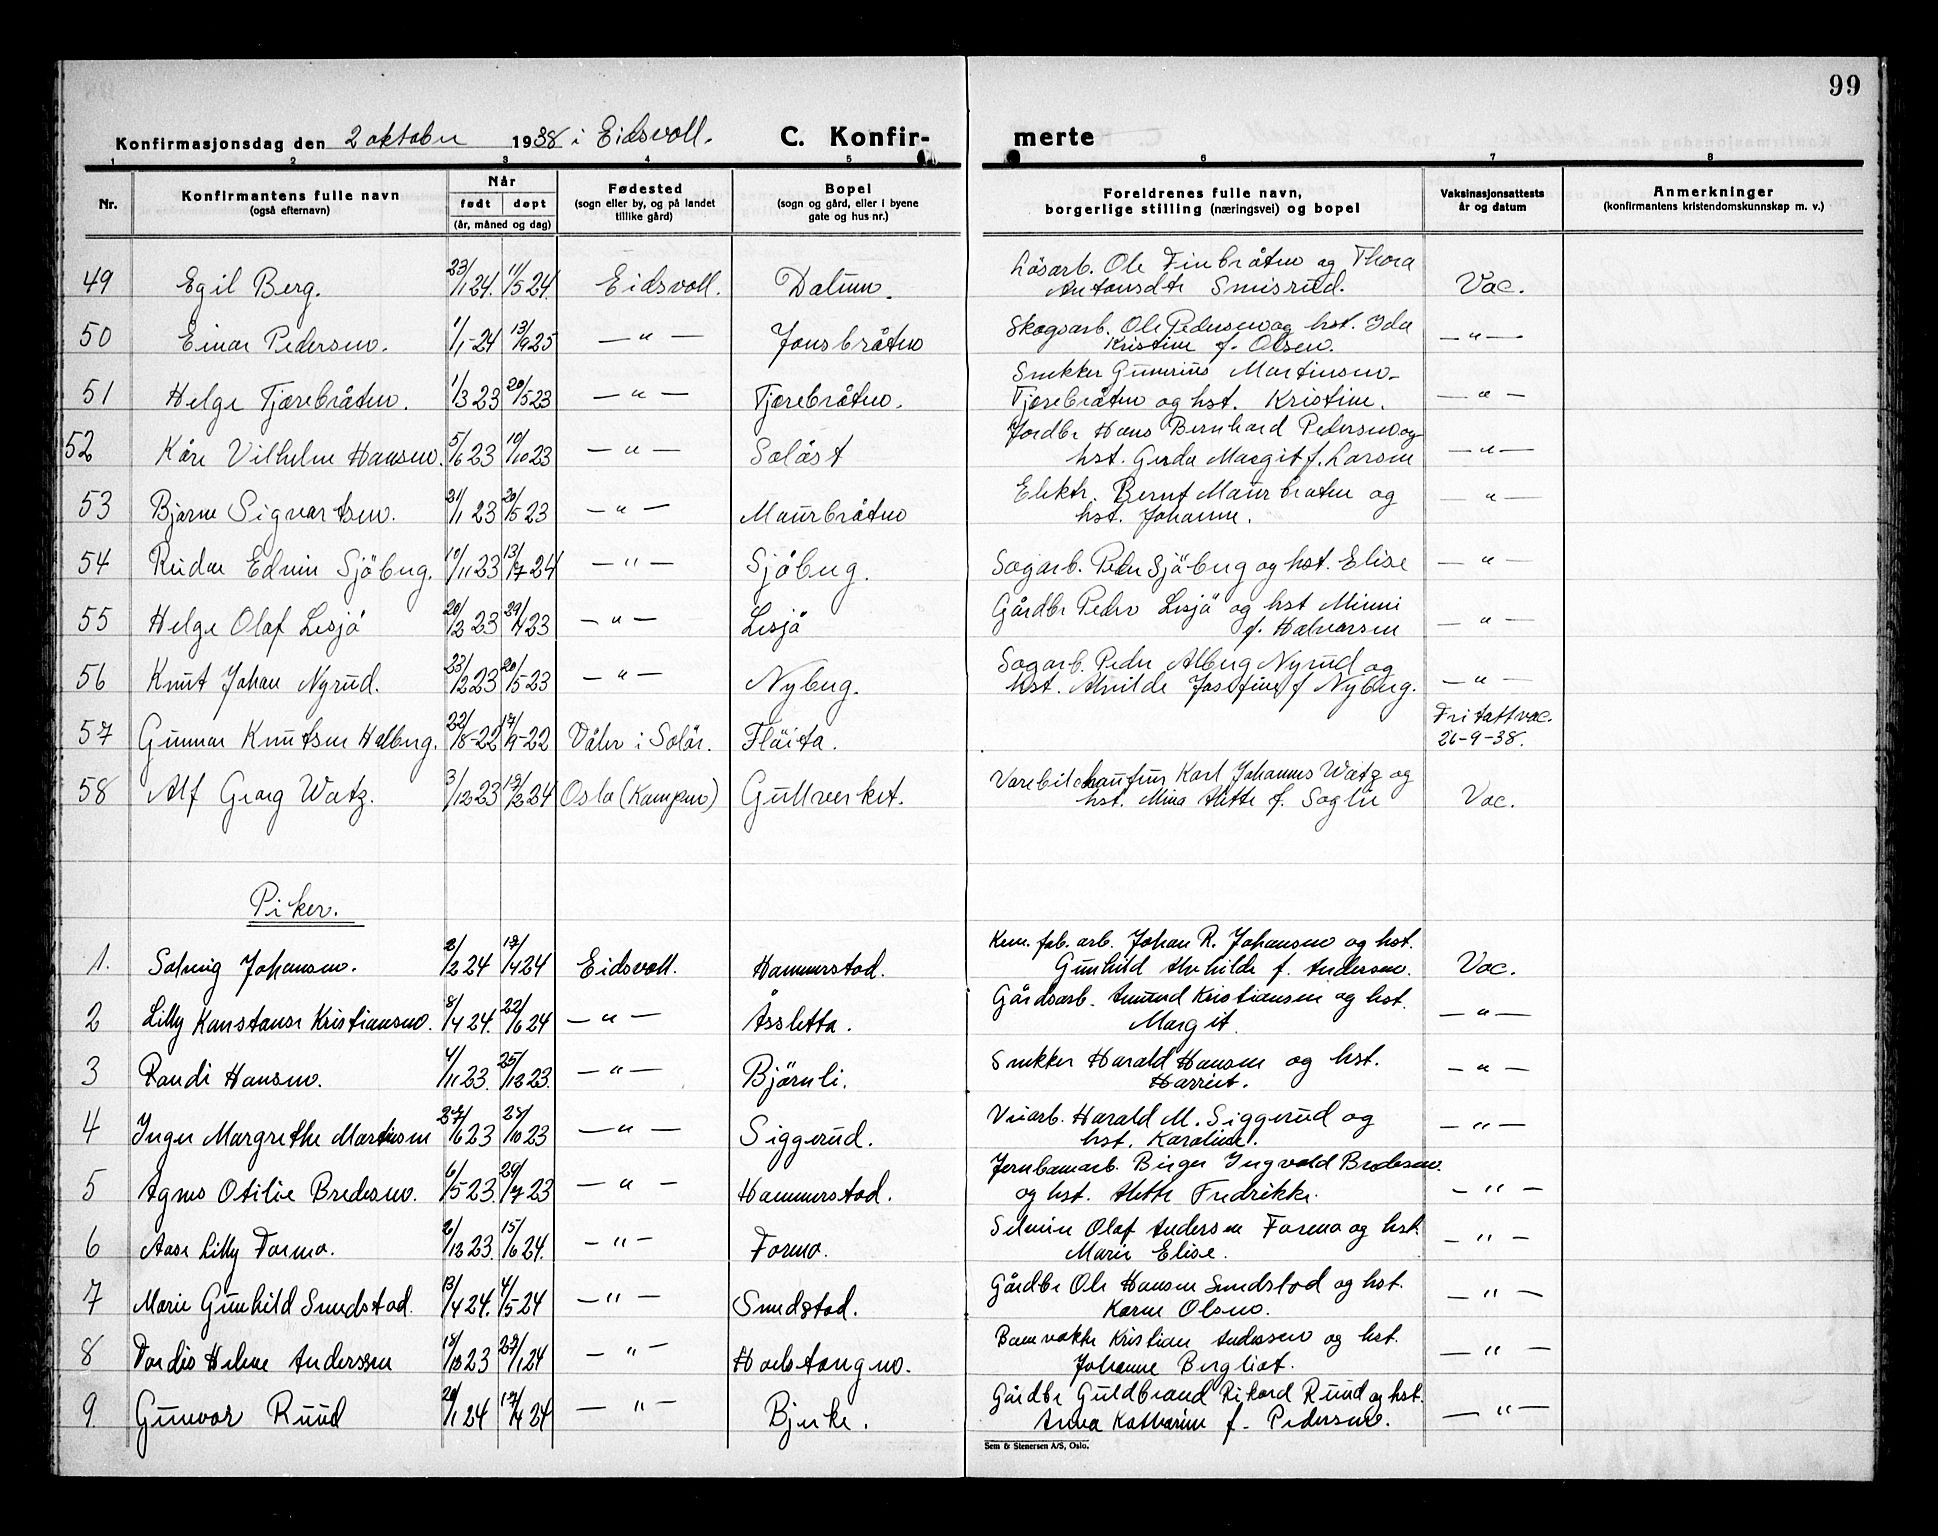 99
Konfirmasjonsdag den 2 oktober 1938 i Eidsvoll. C. Konfir- merte
1 2 3 4 5 6 7 8
Nr. Konfirmantens fulle navn (også efternavn) Når født døpt (år, måned og dag) Fødested (sogn eller by, og på landet tillike gård) Bopel (sogn og gård, eller i byene gate og hus nr.) Foreldrenes fulle navn, borgerlige stilling (næringsvei) og bopel Vaksinasjonsattests år og datum Anmerkninger (konfirmantens kristendomskunnskap m. v.)
49 Egil Berg. 23/1 24. 11/5 24. Eidsvoll. Dalum. Løsarb. Ole Finbråten og Thora
Antonsdtr Smisrud. Vac.
50 Einar Pedersen. 1/1-24 13/9 25 — " — Jonsbråten Skogsarb. Ole Pedersen og hst. Ida
Kristine f. Olsen. — " —
51 Helge Tjærebråten. 1/3 23 20/5 23 — " — Tjærebråten. Snekker Gunerius Martinsen
Tjærebråten og hst. Kristine. — " —
52 Kåre Vilhelm Hansen. 5/6 23 19/10 23 — " — Solåst Jordbr Hans Bernhard Pedersen og
hst. Gerda Margit f. Larsen — " —
53 Bjarne Sigvartsen. 21/1 23 20/5 23 — " — Maurbråten Elektr. Bernt Maurbråten og
hst. Johanne. — " —
54 Reidar Edvin Sjøberg. 19/11 23 13/7 24 — " — Sjøberg. Sagarb. Peder Sjøberg og hst. Elise — " —
55 Helge Olaf Lesjø 20/2 23 29/4 23 — " — Lesjø Gårdbr Peder Lesjø og hst Minni
f. Halvorsen — " —
56 Knut Johan Nyrud. 23/2 23 20/5 23 — " — Nyberg. Sagarb. Peder Alberg Nyrud og
hst. Alvilde Josefine f Nyberg. — " —
57 Gunnar Knutsen Halberg. 22/8-22 17/9-22 Våler i Solør. Fløita. Fritatt vac.
26-9-38.
58 Alf Georg Watz. 3/12 23 17/2 24 Oslo (Kampen) Gullverket. Varebilchauffør Karl Johannes Watz og
hst. Mina Alette f. Saglie Vac.
Piker.
1. Solveig Johansen. 2/2 24 17/4 24 Eidsvoll. Hammerstad. Kem. fab. arb. Johan R. Johansen og hst.
Gunhild Alvhilde f. Andersen. Vac.
2 Lilly Konstanse Kristiansen. 8/4 24. 22/6 24 — " — Åsletta. Gårdsarb. Amund Kristiansen og hst.
Margit. — " —
3 Randi Hansen. 4/11 23. 25/12 23. — " — Bjørnli. Snekker Harald Hansen og hst.
Harriet. — " —
4 Inger Margrethe Martinsen 27/6 23 28/10 23 — " — Siggerud. Veiarb. Harald M. Siggerud og
hst. Karoline. — " —
5 Agnes Otilie Bredesen. 6/5 23. 29/7 23 — " — Hammerstad. Jernbanearb. Birger Ingvald Bredesen.
og hst. Alette Fredrikke. — " —
6 Aase Lilly Formo. 2/12 23. 15/6 24. — " — Formo. Selveier Olaf Andersen Formo og hst.
Marie Elise. — " —
7 Marie Gunhild Sundstad. 13/4 24. 4/5 24 — " — Sundstad. Gårdbr Ole Hansen Sundstad og hst.
Karen Olsen. — " —
8 Tordis Helene Anderssen 18/10 23 27/1 24 — " — Holstangen. Banevokter Kristian Andersen og hst.
Johanne Bergliot. — " —
9 Gunvor Ruud 20/1 24 17/4 24 — " — Bjerke. Gårdbr Guldbrand Rikard Ruud og hst.
Anna Katharine f. Pedersen. — " —
Sem & Stenersen A/S, Oslo.